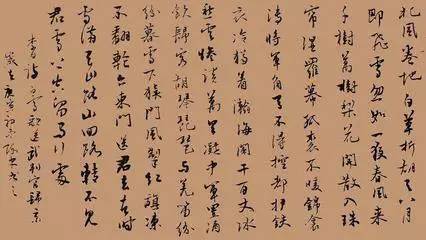 北風卷地白草折胡天八月
即飛雪忽如一夜春風來
千樹萬樹梨花開散入珠
帘濕羅幕狐裘不暖錦衾
薄將軍角弓不得控都护鐵
衣冷猶著瀚海闌干百丈冰
愁雲慘淡萬里凝中軍置酒
飲歸客胡琴琵琶與羌笛紛
紛暮雪下轅門風掣紅旗凍
不翻輪台東門送君去去時
雪滿天山路山回路轉不見
君雪上空留馬行處
詩白雪歌送武判官歸京
歲在庚寅初冬書之